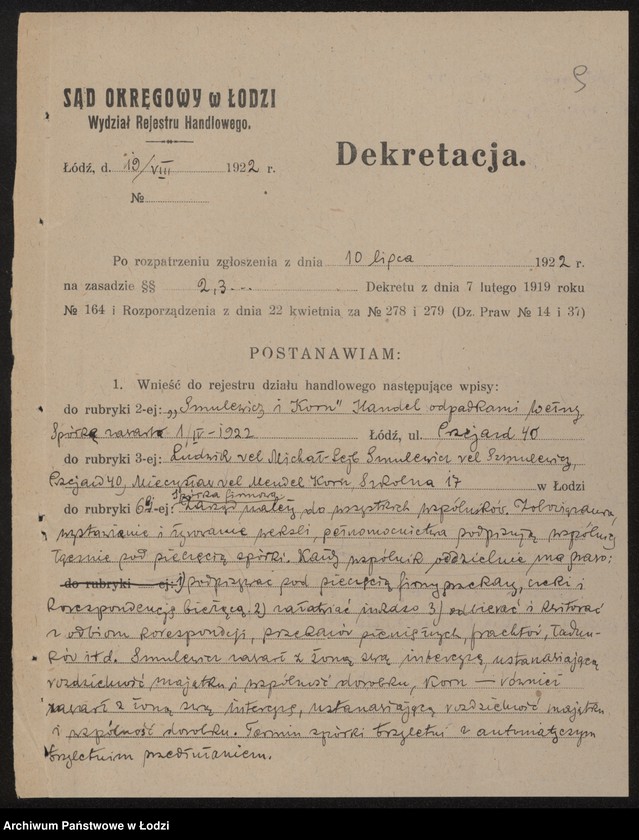 9
SĄD OKRĘGOWY w ŁODZI
Wydział Rejestru Handlowego.
Łódź, d. 19/VIII 1922 r.
№
Dekretacja.
Po rozpatrzeniu zgłoszenia z dnia 10 lipca 1922 r.
na zasadzie §§ 2,3... Dekretu z dnia 7 lutego 1919 roku
№ 164 i Rozporządzenia z dnia 22 kwietnia za № 278 i 279 (Dz. Praw № 14 i 37)
POSTANAWIAM:
1. Wnieść do rejestru działu handlowego następujące wpisy:
do rubryki 2-ej: „Smulewicz i Korn" Handel odpadkami wełny
Spółka zawarta 1/IV-1922 Łódź, ul. Przejazd 40
do rubryki 3-ej: Ludwik vel Michał-Lejb Smulewicz vel Szmulewicz,
Przejazd 40, Mieczysław vel Mendel Korn, Szkolna 17 w Łodzi
do rubryki 6-ej: Spółka firmowa Zarząd należy do wszystkich wspólników. Zobowiązania,
wystawianie i żyrowanie weksli, pełnomocnictwa podpisują wspólnicy
łącznie pod pieczęcią spółki. Każdy wspólnik oddzielnie ma prawo:
do rubryki ej: 1) podpisywać pod pieczęcią firmy przekazy, czeki i
korespondencję bieżącą, 2) załatwiać inkaso 3) odbierać i kwitować
z odbioru korespondencji, przekazów pieniężnych, frachtów, ładun-
ków itd. Smulewicz zawarł z żoną swą intercyzę, ustanawiającą
rozdzielność majątku i wspólność dorobku, Korn — również
zawarł z żoną swą intercyzę, ustanawiającą rozdzielność majątku
i wspólność dorobku. Termin spółki trzyletni z automatycznym
trzyletnim przedłużaniem.
Archiwum Państwowe w Łodzi